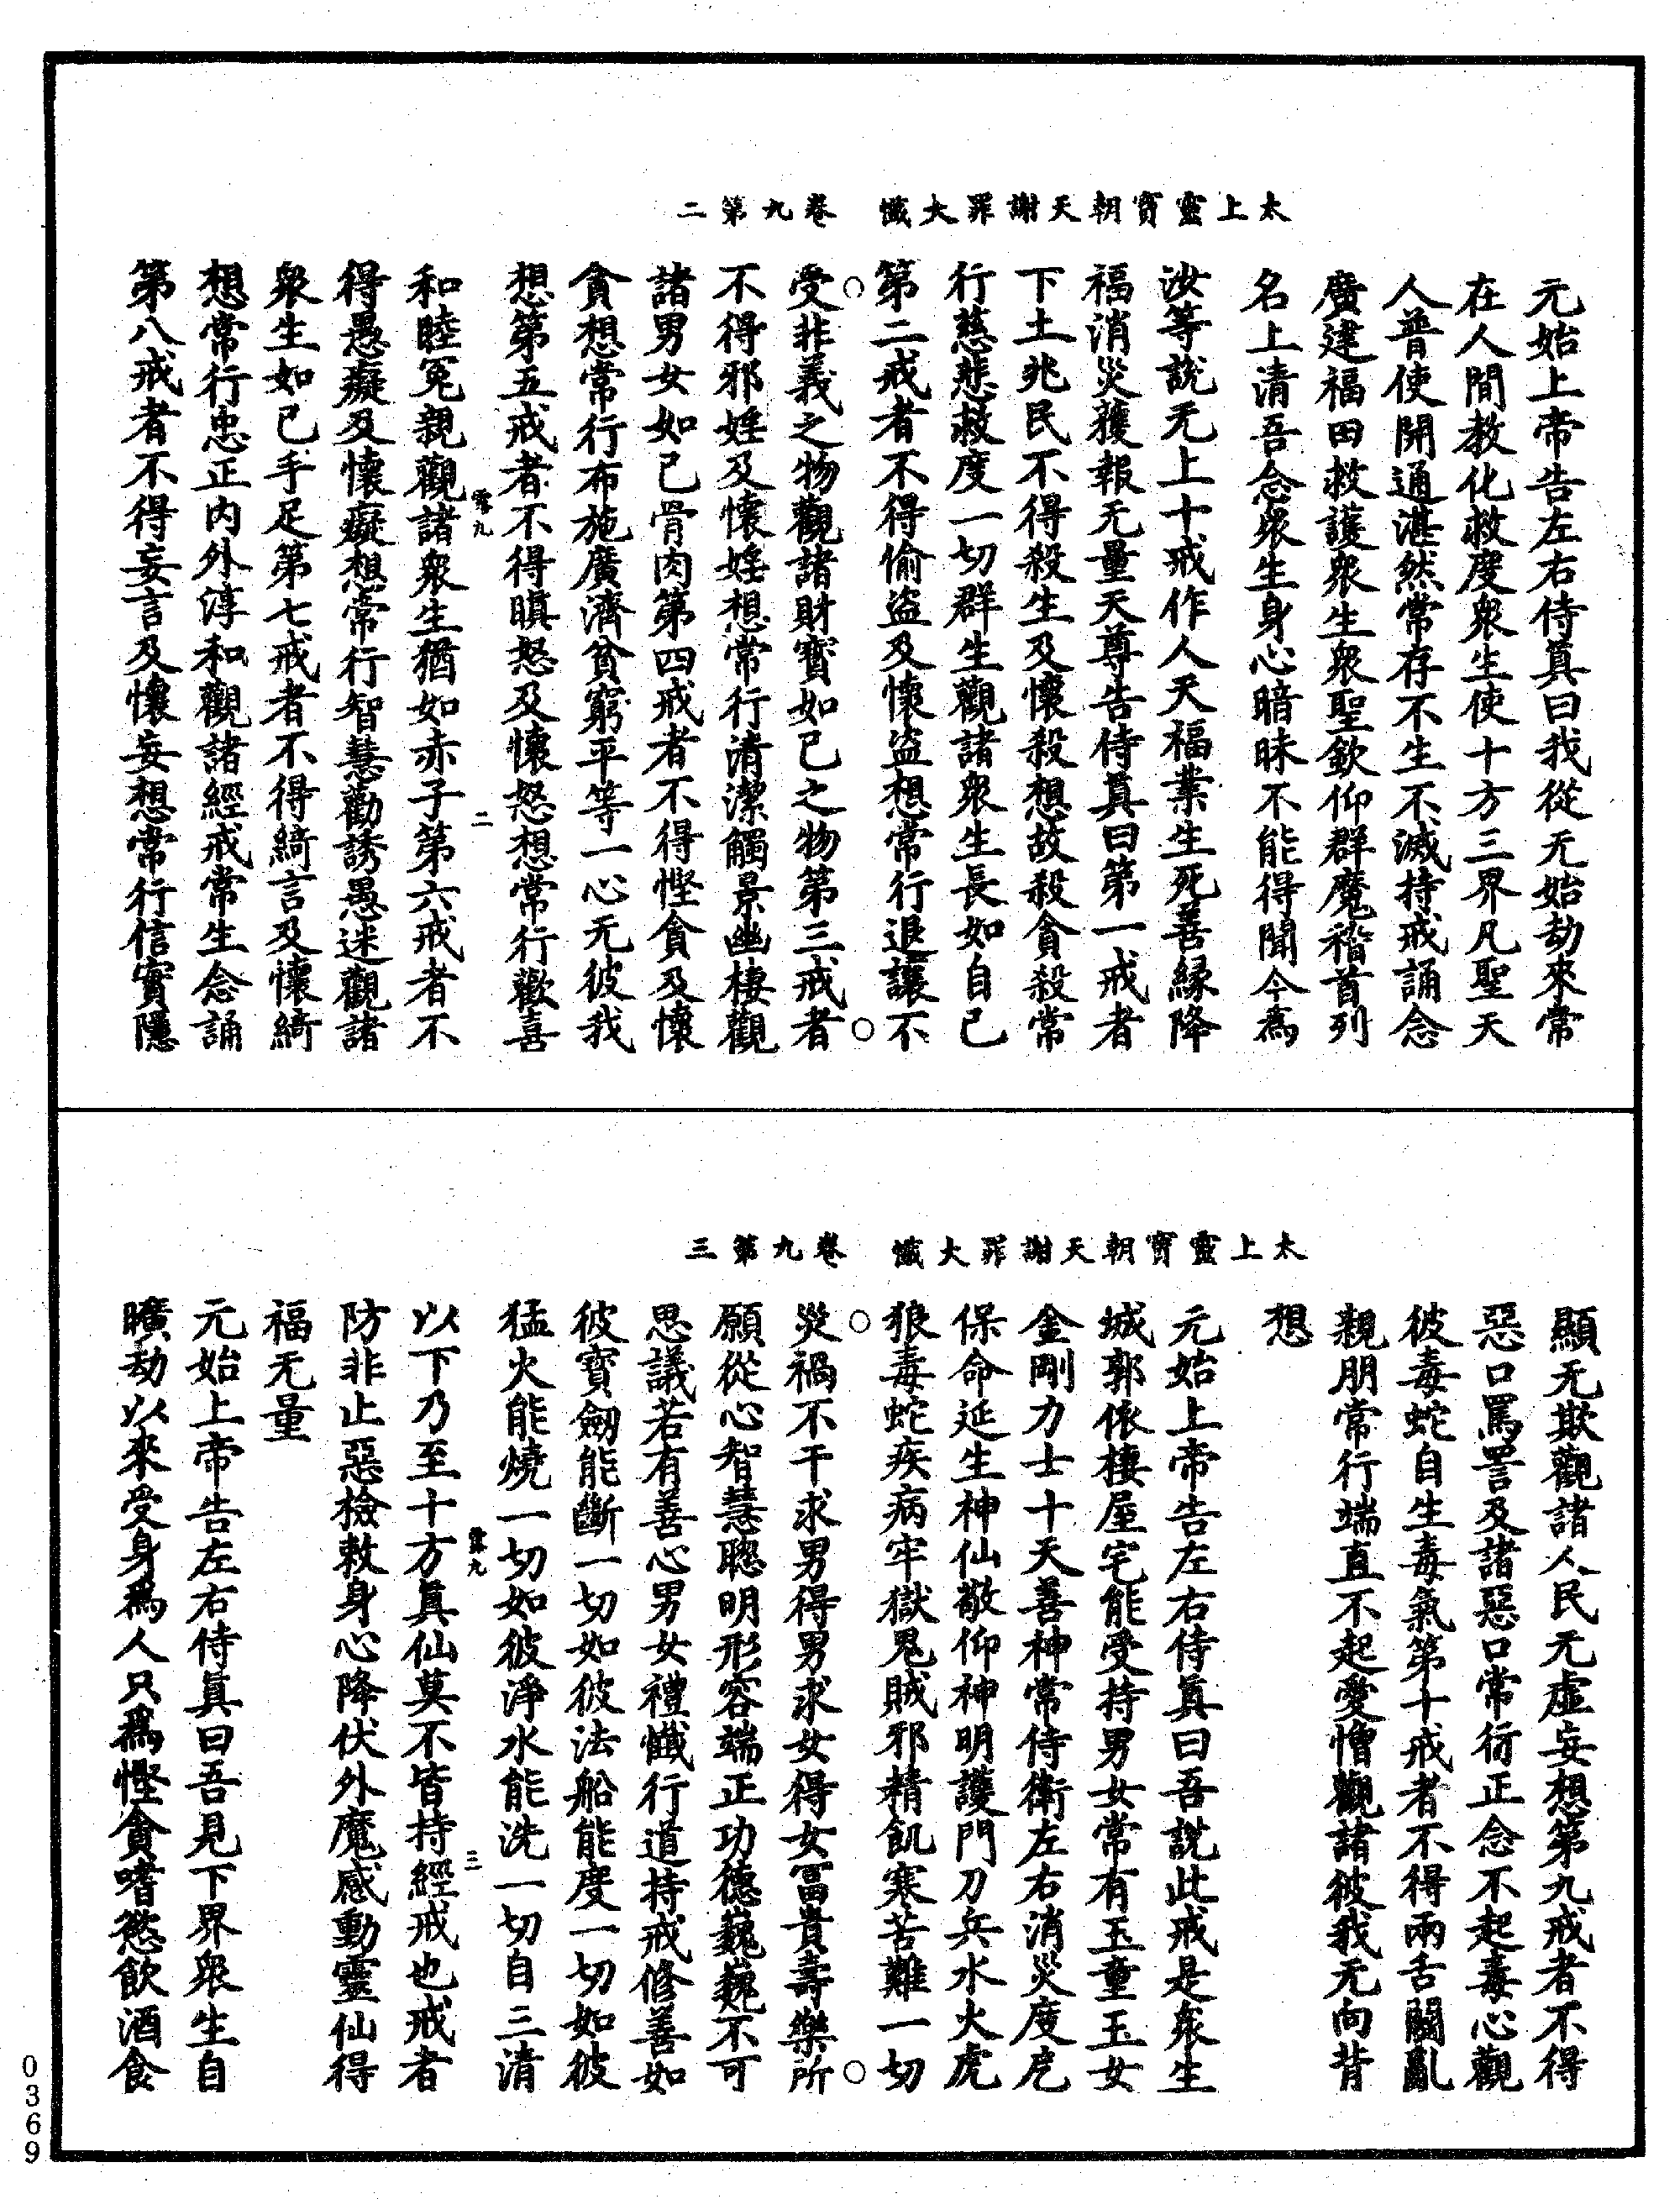 太上靈寶朝天謝罪大懺　卷九第二
元始上帝告左右侍眞曰我從无始劫來常
在人間教化救度衆生使十方三界凡聖天
人普使開通湛然常存不生不滅持戒誦念
廣建福田救護衆生衆聖欽仰群魔稽首列
名上清吾念衆生身心暗昧不能得聞今爲
汝等說无上十戒作人天福業生死善緣降
福消災獲報无量天尊告侍眞曰第一戒者
下土兆民不得殺生及懷殺想故殺貪殺常
行慈悲救度一切群生觀諸衆生長如自己
第二戒者不得偷盜及懷盜想常行退讓不
受非義之物觀諸財寶如己之物第三戒者
不得邪婬及懷婬想常行清潔觸景幽棲觀
諸男女如己骨肉第四戒者不得慳貪及懷
貪想常行布施廣濟貧窮平等一心无彼我
想第五戒者不得瞋怒及懷怒想常行歡喜
露九　二
和睦冤親觀諸衆生猶如赤子第六戒者不
得愚癡及懷癡想常行智慧勸誘愚迷觀諸
衆生如己手足第七戒者不得綺言及懷綺
想常行忠正内外淳和觀諸經戒常生念誦
第八戒者不得妄言及懷妄想常行信實隱
太上靈寶朝天謝罪大懺　卷九第三
顯无欺觀諸人民无虛妄想第九戒者不得
惡口罵詈及諸惡口常行正念不起毒心觀
彼毒蛇自生毒氣第十戒者不得兩舌鬭亂
親朋常行端直不起愛憎觀諸彼我无向背
想
元始上帝告左右侍眞曰吾說此戒是衆生
城郭依棲屋宅能受持男女常有玉童玉女
金剛力士十天善神常侍衛左右消災度厄
保命延生神仙敬仰神明護門刀兵水火虎
狼毒蛇疾病牢獄鬼賊邪精飢寒苦難一切
災禍不干求男得男求女得女富貴壽樂所
願從心智慧聰明形容端正功德巍巍不可
思議若有善心男女禮懺行道持戒修善如
彼寶劒能斷一切如彼法船能度一切如彼
猛火能燒一切如彼淨水能洗一切自三清
露九　三
以下乃至十方眞仙莫不皆持經戒也戒者
防非止惡檢敕身心降伏外魔感動靈仙得
福无量
元始上帝告左右侍眞曰吾見下界衆生自
曠劫以來受身爲人只爲慳貪嗜慾飲酒食
0369